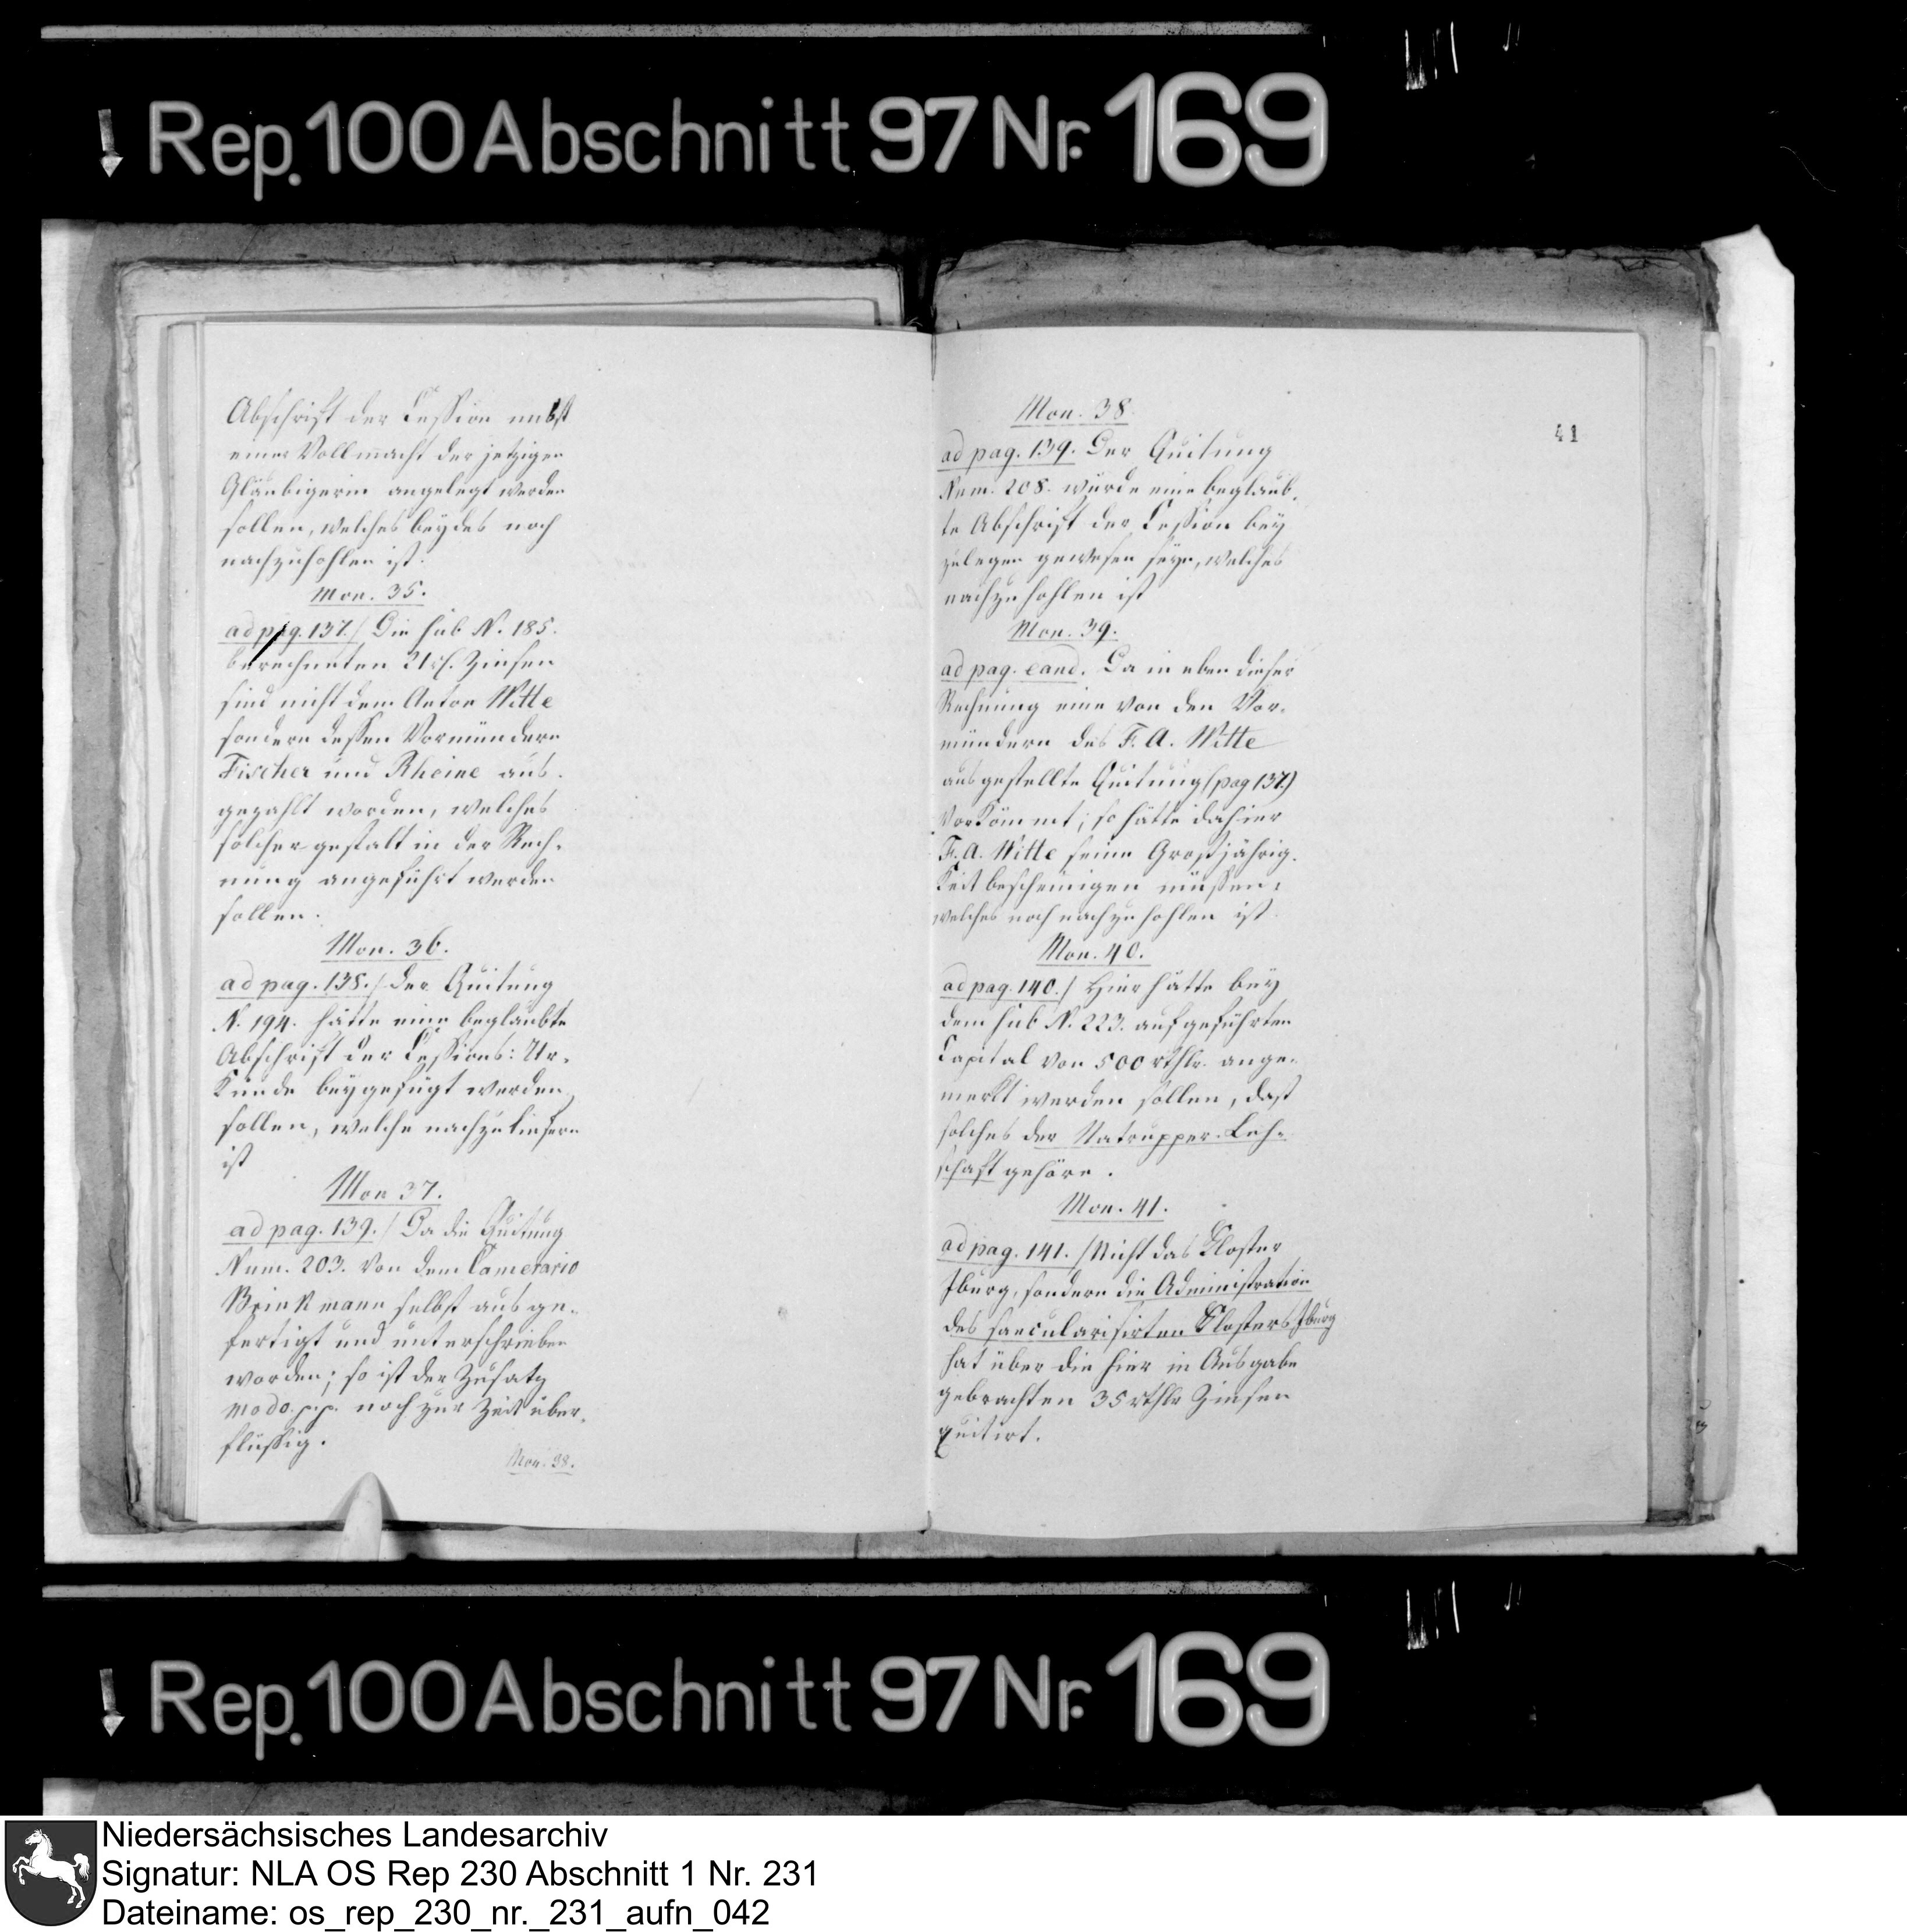 Rep. 100 Abschnitt 97 Nr. 169
Abschrift der Cession nebst
einer Vollmacht der jetzigen
Gläubigerin angelegt werden
sollen, welches beydes noch
nachzuhohlen ist.
Mon. 35.
ad pag. 137./ Die sub N. 185.
berechneten 21 rl. Zinsen
sind nicht dem Anton Witte
sondern dessen Vormündern
Fischer und Rheine aus-
gezahlt worden, welches
solcher gestalt in der Rech-
nung angeführt werden
sollen.
Mon. 36.
ad pag. 138./ Der Quitung
N. 194. hätte eine beglaubte
Abschrift der Cessions: Ur-
kunde beygefügt werden
sollen, welche nachzuliefern
ist
Mon 37.
ad pag. 139./ Da die Quitung
Num. 203. von dem Camerario
Brinkmann selbst ausge-
fertigt und unterschrieben
worden; so ist der Zusatz
modo p.p. noch zur Zeit über-
flüssig.
Mon. 38.
41
Mon. 38
ad pag. 139. Der Quitung
Num. 208. würde eine beglaub-
te Abschrift der Cession bey
zulegen gewesen seyn, welches
nachzuhohlen ist
Mon. 39.
ad pag. eand. Da in eben dieser
Rechnung eine von den Vor-
mündern des F. A. Witte
ausgestellte Quitung (pag 137.)
vorkömmt; so hätte dahier
F. A. Witte seine Großjährig-
keit bescheinigen müssen,
welches noch nachzuhohlen ist.
Mon. 40.
ad pag. 140./ Hier hätte bey
dem sub N. 223. aufgeführten
Capital von 500 rthlr. ange-
merkt werden sollen, daß
solches der Natrupper Leh-
schaft gehöre.
Mon. 41.
ad pag. 141. / Nicht das Kloster
Iburg, sondern die Administration
des saecularisirten Klosters Iburg
hat über die hier in Ausgabe
gebrachten 35 rthlr Zinsen
quitirt.
Rep. 100 Abschnitt 97 Nr. 169
Niedersächsisches Landesarchiv
Signatur: NLA OS Rep 230 Abschnitt 1 Nr. 231
Dateiname: os_rep_230_nr._231_aufn_042